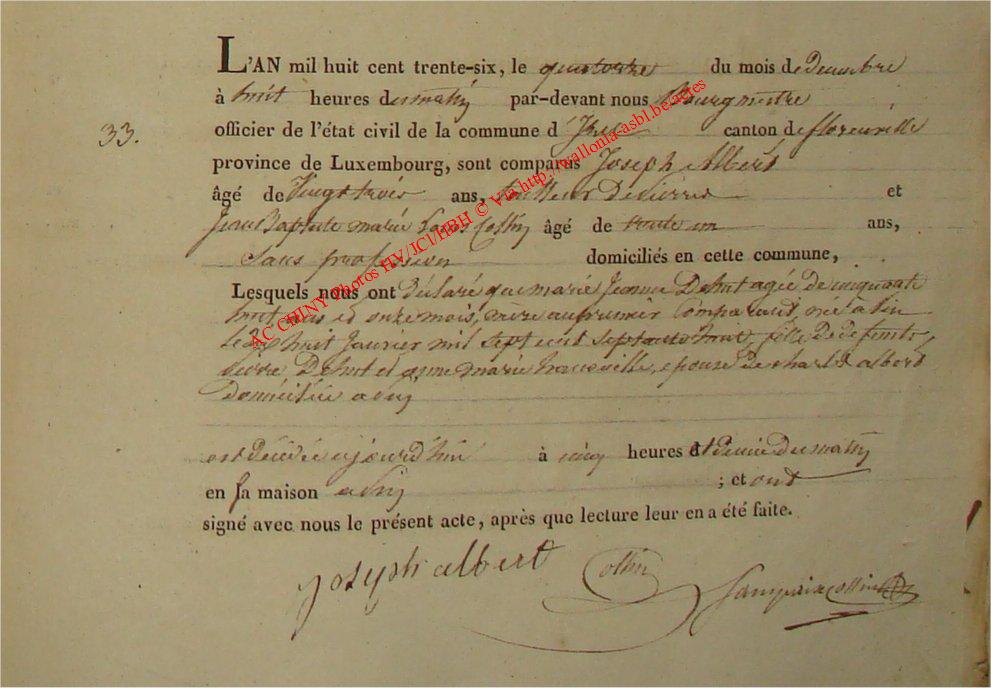 L'AN mil huit cent trente-six, le quatorze du mois de decembre
à huit heures du matin par-devant nous Bourgmestre
33.
officier de l'état civil de la commune d' canton de florenville
province de Luxembourg, sont comparus Joseph Albert
âgé de Vingt trois ans, et
Jean Baptiste marie Collin âgé de trente un ans,
Sans profession domiciliés en cette commune,
Lesquels nous ont déclaré que marie Jeanne agée de cinquante
huit ans et onze mois, mere au premier Comparant, née a
le dix huit Janvier mil sept cent septante huit, fille de defunts
pierre et anne marie epouse de charles albert
Domiciliée a
est décédée aujourd'hui à cinq heures et demie du matin
en sa maison ; et ont
signé avec nous le présent acte, après que lecture leur en a été faite.
Joseph albert Collin
AC CHINY Photos HV/JCl/HBH © Via http://wallonia-asbl.be/actes